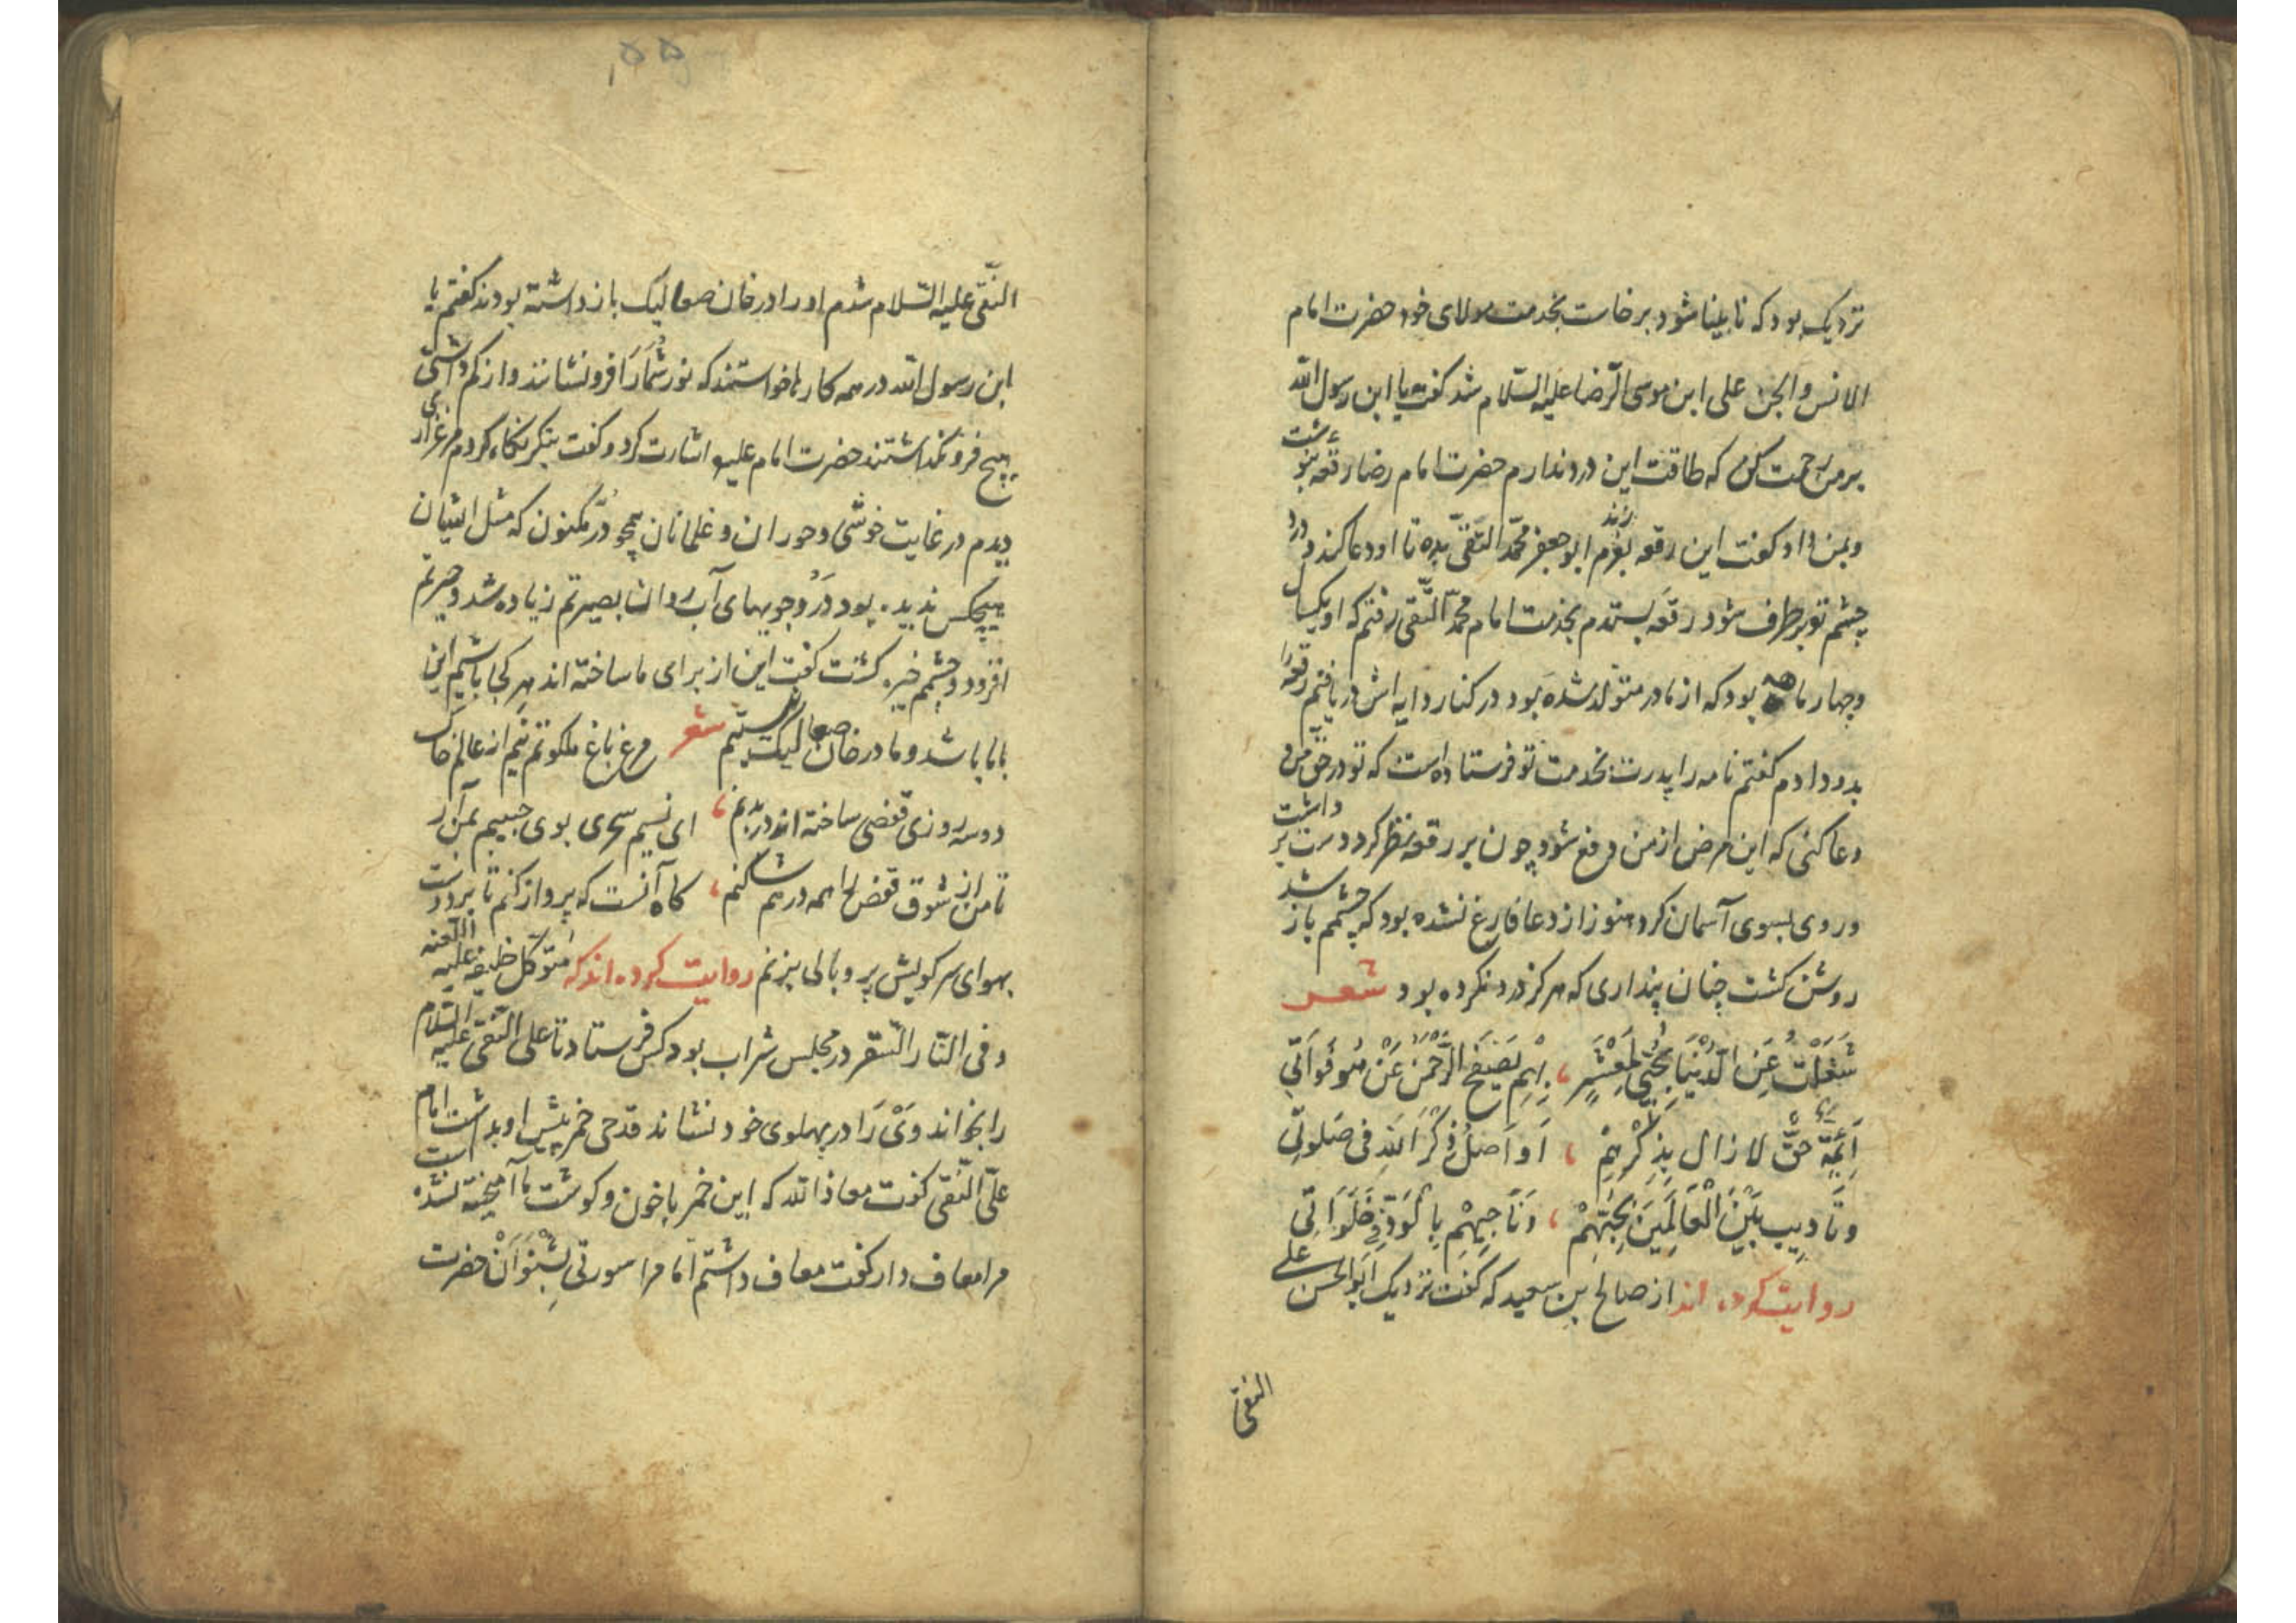 نزدیک بود که نابینا شود برخاست بخدمت مولای خود حضرت امام
الانس والجن علی ابن موسی الرضا علیه السلام شد گفت یا ابن رسول الله
بر من رحمت کن که طاقت این درد ندارم حضرت امام رضا رقعه بنوشت
و بمن داد و گفت این رقعه بفرزندم ابو جعفر محمد التقی بده تا او دعا کند درد
چشم تو برطرف شود رقعه بستدم بخدمت امام محمد التقی رفتم که او یکسال
و چهار ماهه بود که از مادر متولد شده بود در کنار دایه اش دریافتم رقعه را
بدو دادم گفتم نامه را پدرت بخدمت تو فرستاده است که تو در حق من
دعا کنی که این مرض از من دفع شود چون بر رقعه نظر کرد دست برداشت
و روی بسوی آسمان کرد هنوز از دعا فارغ نشده بود که چشمم باز شد
روشن کشت چنان پنداری که هرکز درد نکرده بود شعر
شَغَلْتُ عَنِ الدُّنْيَا بِحُبِّي لِمَعْشَرٍ ، بِهِمْ يَصْفَحُ الرَّحْمٰنُ عَنْ
اَئِمَّةِ حَقٍّ لا زال بِذِكْرِهِمْ ، اَواصلُ ذِكْرَ اللهِ فی صَلوتی
وتَادیب بَیْنَ الْعَالَمِينَ بِحُبِّهِمْ ، وَنَاجِيهِمْ فی خَلَوَاتی
روایت کرده اند از صالح بن سعید که گفت نزدیک ابو الحسن علی
النقی
۵۵
النقی علیه السلام شدم او را در خان صعالیک بازداشته بودند گفتم یا
ابن رسول الله در همه کارها خواستند که نور شما را فرو نشانند و از کم داشتی
هیچ فرو نکذاشتند حضرت امام علیه اشارت کرد و گفت بنکر نگاه کردم مرغزاری
دیدم در غایت خوشی و حوران و غلمانان همچو دُرّ مکنون که مثل ایشان
هیچکس ندیده بود و در و جویهای آب روان بصیرتم زیاده شد و حیرتم
افزود و چشمم خیره گشت گفت این از برای ما ساخته اند هر کجا باشیم این
با ما باشد و ما در خان صعالیک نیستیم شعر مرغ باغ ملکوتم نیم از عالم خاک
دو سه روزی قفضی ساخته اند در بدنم ، ای نسیم سحری بوی حبیبم بمن آر
تا من از شوق قفض را همه در هم شکنم ، کاه آنست که پرواز کنم تا بر دوست
بهوای سر کویش پر و بالی بزنم روایت کرده اند که متوکل خلیفه علیه اللعنه
و فی النار السقر در مجلس شراب بود کس فرستاد تا علی النقی علیه السلام
را بخواند و وی را در پهلوی خود نشاند قدحی خمر پیش او بداشت امام
علی النقی گفت معاذ الله که این خمر با خون و کوشت ما آمیخته نشده است
مرا معاف دار گفت معاف داشتم اما مرا سورتی بشنوان حضرت